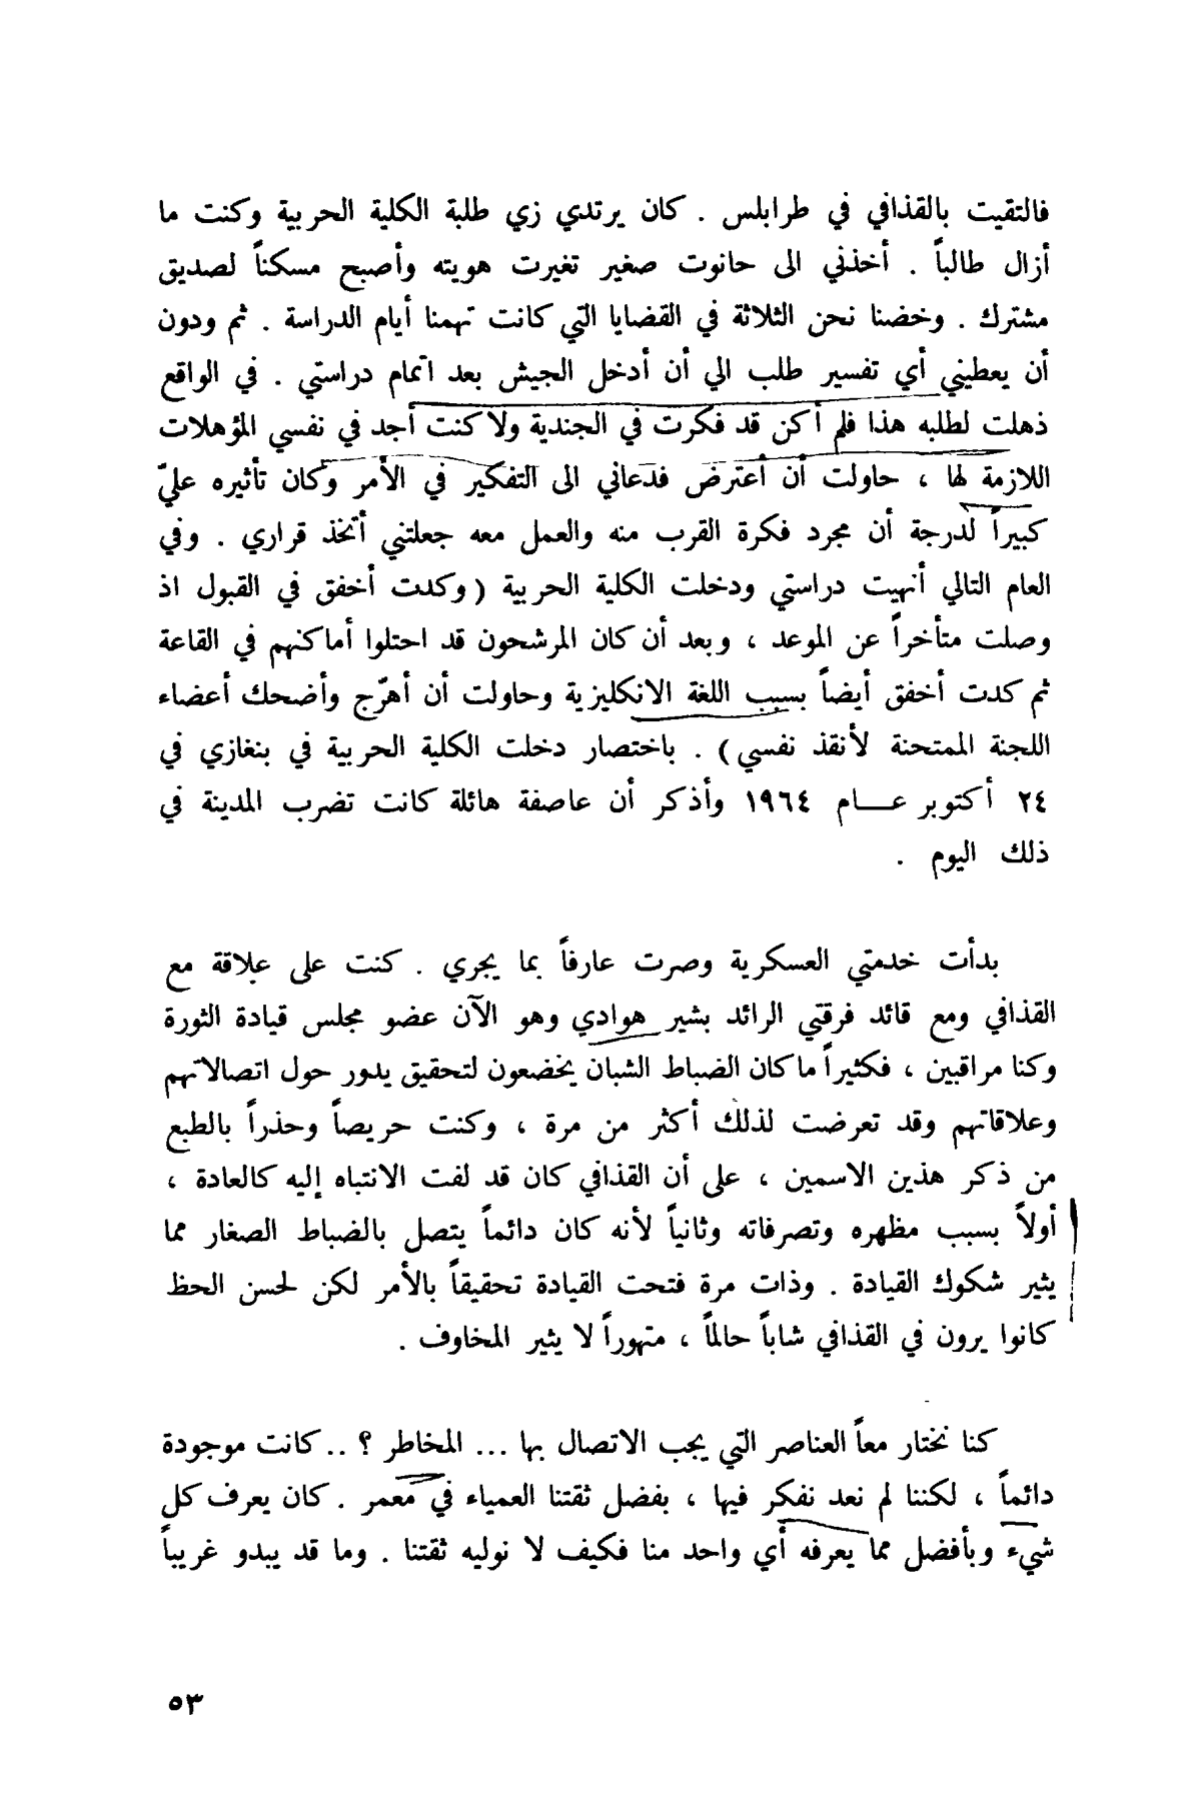 فالتقيت بالقذافي في طرابلس . كان يرتدي زي طلبة الكلية الحربية وكنت ما
أزال طالباً . أخذني الى حانوت صغير تغيرت هويته وأصبح مسكناً لصديق
مشترك . وخضنا نحن الثلاثة في القضايا التي كانت تهمنا أيام الدراسة . ثم ودون
أن يعطيني أي تفسير طلب الي أن أدخل الجيش بعد اتمام دراستي . في الواقع
ذهلت لطلبه هذا فلم أكن قد فكرت في الجندية ولا كنت أجد في نفسي المؤهلات
اللازمة لها ، حاولت أن أعترض فدعاني الى التفكير في الأمر وكان تأثيره عليّ
كبيراً لدرجة أن مجرد فكرة القرب منه والعمل معه جعلتني أتخذ قراري . وفي
العام التالي أنهيت دراستي ودخلت الكلية الحربية ( وكدت أخفق في القبول اذ
وصلت متأخراً عن الموعد ، وبعد أن كان المرشحون قد احتلوا أماكنهم في القاعة
ثم كدت أخفق أيضاً بسبب اللغة الانكليزية وحاولت أن أهرّج وأضحك أعضاء
اللجنة الممتحنة لأنقذ نفسي) . باختصار دخلت الكلية الحربية في بنغازي في
٢٤ أكتوبر عـــام ١٩٦٤ وأذكر أن عاصفة هائلة كانت تضرب المدينة في
ذلك اليوم .
بدأت خدمتي العسكرية وصرت عارفاً بما يجري . كنت على علاقة مع
القذافي ومع قائد فرقتي الرائد بشير هوادي وهو الآن عضو مجلس قيادة الثورة
وكنا مراقبين ، فكثيراً ما كان الضباط الشبان يخضعون لتحقيق يدور حول اتصالاتهم
وعلاقاتهم وقد تعرضت لذلك أكثر من مرة ، وكنت حريصاً وحذراً بالطبع
من ذكر هذين الاسمين ، على أن القذافي كان قد لفت الانتباه إليه كالعادة ،
أولاً بسبب مظهره وتصرفاته وثانياً لأنه كان دائماً يتصل بالضباط الصغار مما
يثير شكوك القيادة . وذات مرة فتحت القيادة تحقيقاً بالأمر لكن لحسن الحظ
كانوا يرون في القذافي شاباً حالماً ، متهوراً لا يثير المخاوف .
كنا نختار معاً العناصر التي يجب الاتصال بها ... المخاطر ؟ .. كانت موجودة
دائماً ، لكننا لم نعد نفكر فيها ، بفضل ثقتنا العمياء في معمر . كان يعرف كل
شيء وبأفضل مما يعرفه أي واحد منا فكيف لا نوليه ثقتنا . وما قد يبدو غريباً
٥٣